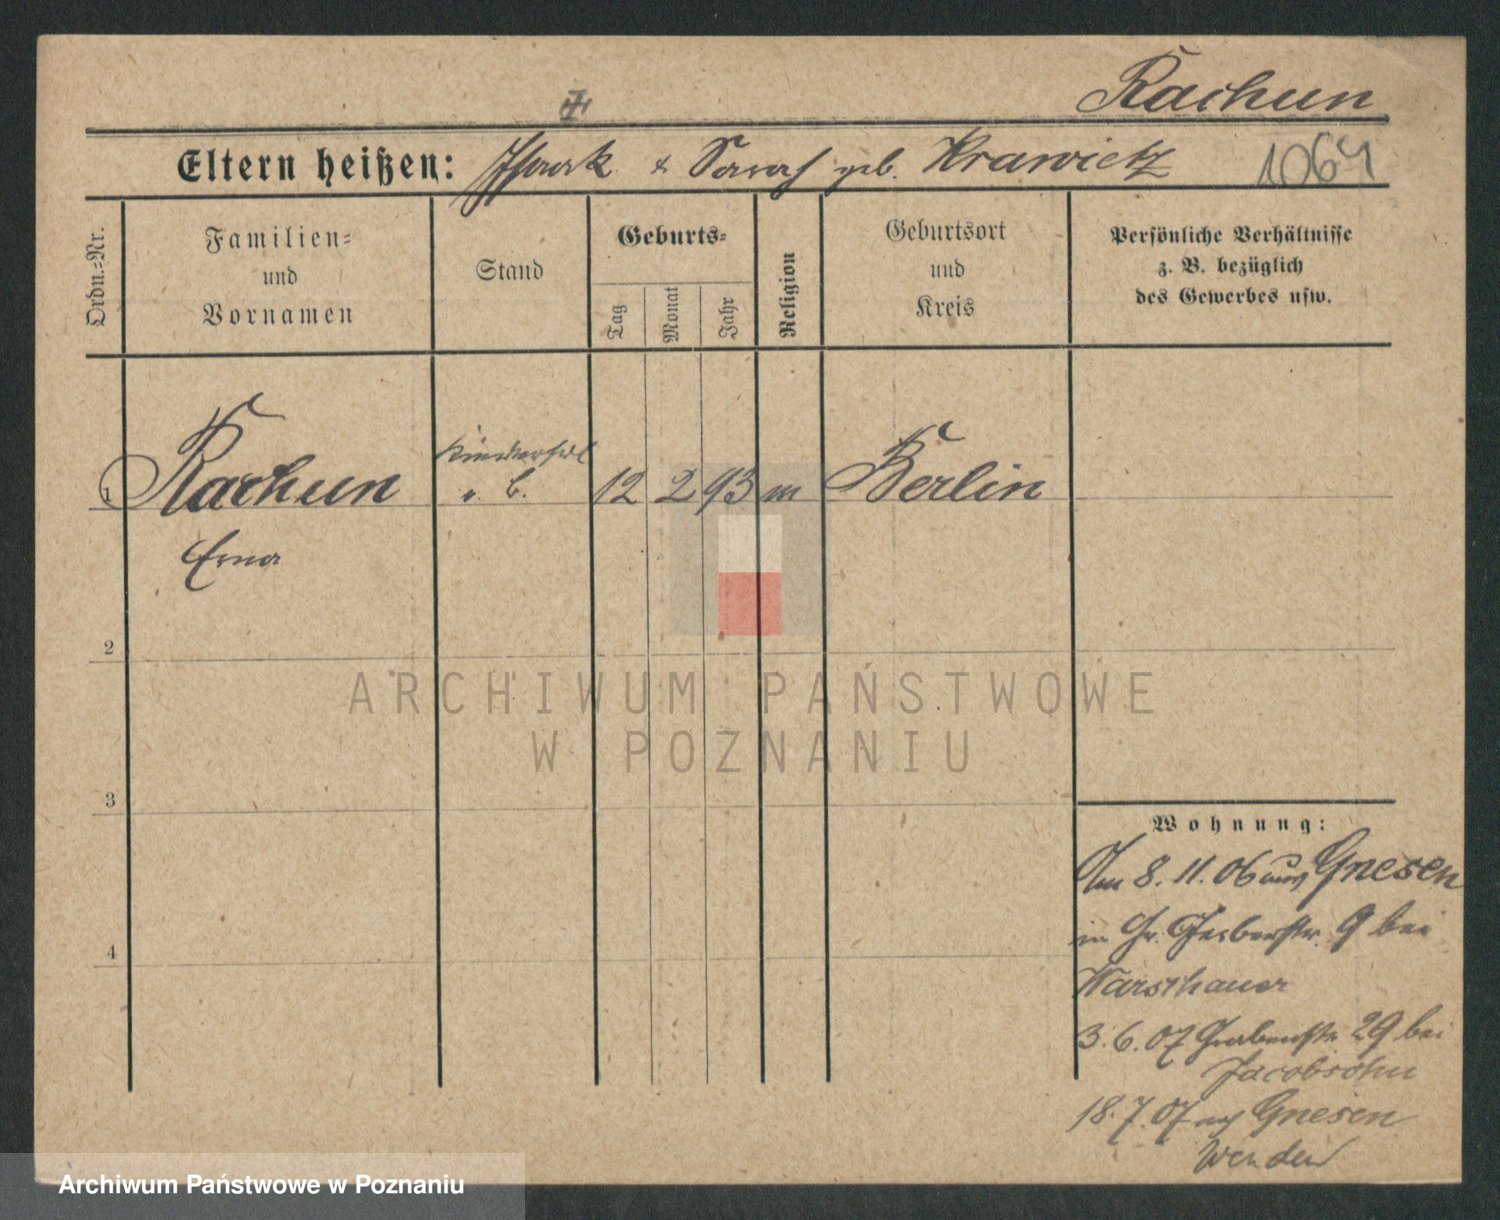 Rachun
Eltern heißen: Isaak & Sarah geb. Krawietz 1064
Ordn.-Nr.
Familien-
und
Vornamen
Stand
Geburts-
Tag
Monat
Jahr
Religion
Geburtsort
und
Kreis
Persönliche Verhältnisse
z. B. bezüglich
des Gewerbes usw.
1 Rachun Kinderfrl 12 2 93 m Berlin
Erna
2
3
4
Wohnung:
Am 8. 11. 06 aus Gnesen
in Gr. Gerberstr. 9 bei
Warschauer
3. 6. 07 Grabenstr 29 bei
Jacobsohn
18. 7. 07 Gnesen
ARCHIWUM PAŃSTWOWE
W POZNANIU
Archiwum Państwowe w Poznaniu